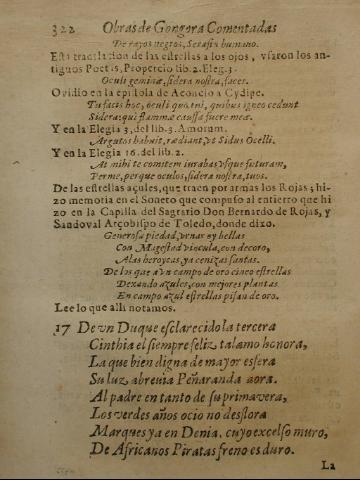 322 Obras de Gongora Comentadas
De rayos negros, Serafin humano.
Esta translation de las estrellas a los ojos, vsaron los an-
tiguos Poetas, Propercio lib. 2. Eleg. 3.
Oculi geminæ, sidera nostra, faces.
Ovidio en la epistola de Aconcio a Cydipe.
Tu facis hoc, oculique tui, quibus igneo cedunt
Sidera: qui flammæ caussa fuere meæ.
Y en la Elegia 3. del lib. 3. Amorum.
Argutos habuit, radiant, vt Sidus Ocelli.
Y en la Elegia 16. del lib. 2.
At mihi te comitem iurabas vsque futuram,
Perme, perque oculos, sidera nostra, tuos.
De las estrellas açules, que traen por armas los Rojas, hi-
zo memoria en el Soneto que compuso al entierro que hi
zo en la Capilla del Sagrario Don Bernardo de Rojas, y
Sandoval Arçobispo de Toledo, donde dixo.
Generosa piedad, vrnas oy bellas
Con Magestad vincula, con decoro,
A las heroycas ya cenizas santas.
De los que a vn campo de oro cinco estrellas
Dexando azules, con mejores plantas
En campo azul estrellas pisan de oro.
Lee lo que alli notamos.
17 De vn Duque esclarecido la tercera
Cinthia el siempre feliz talamo honora,
La que bien digna de mayor esfera
Su luz abreuia Peñaranda aora.
Al padre en tanto de su primavera,
Los verdes años ocio no desflora
Marques ya en Denia, cuyo excelso muro,
De Africanos Piratas freno es duro.
La